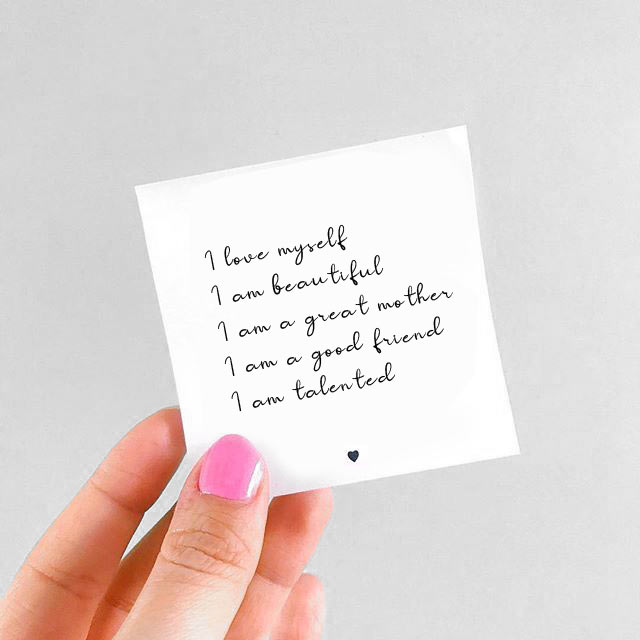 I love myself
I am beautiful
I am a great mother
I am a good friend
I am talented